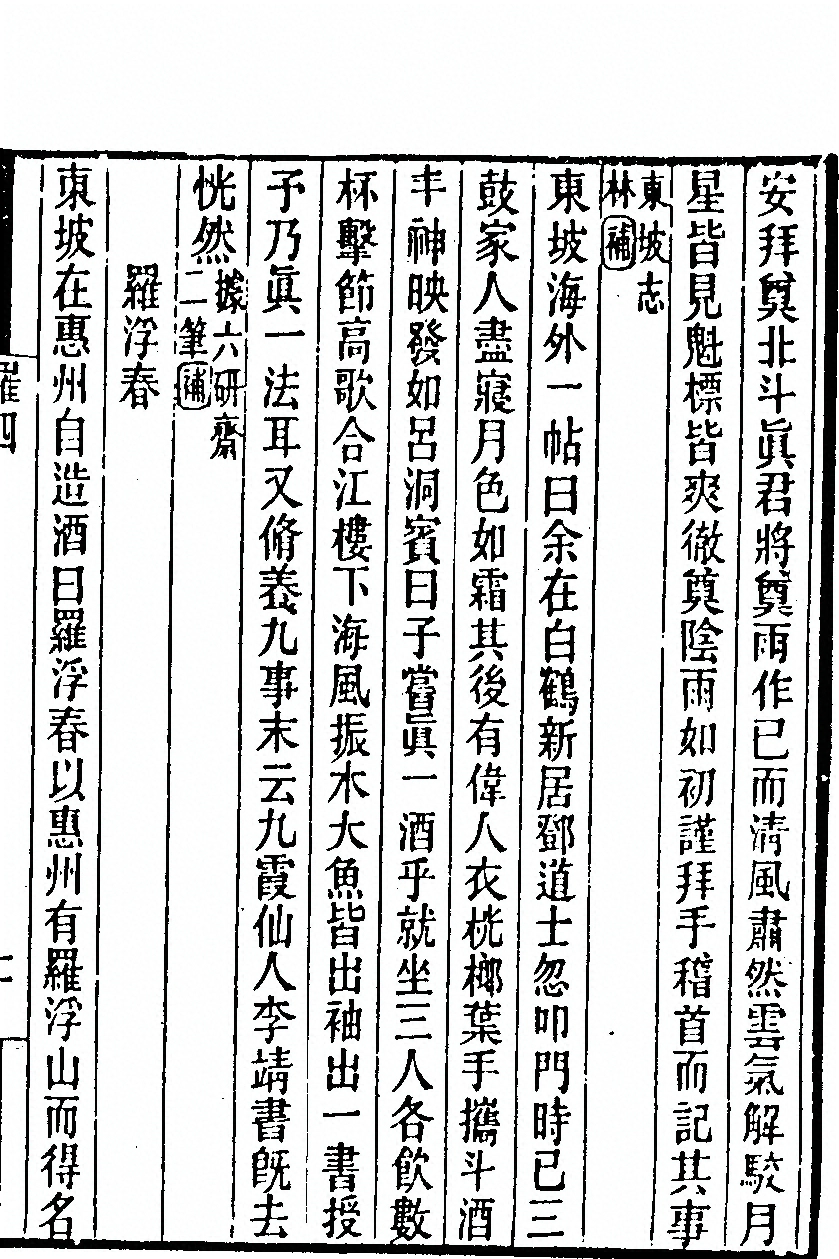 安拜奠北斗眞君將奠雨作已而淸風肅然雲氣解駮月
星皆見魁標皆爽徹奠陰雨如初謹拜手稽首而記其事
東坡志
林補
東坡海外一帖曰余在白鶴新居鄧道士忽叩門時已三
鼓家人盡寢月色如霜其後有偉人衣桄榔葉手攜斗酒
丰神映發如呂洞賓曰子嘗眞一酒乎就坐三人各飮數
杯擊節高歌合江樓下海風振水大魚皆出袖出一書授
予乃眞一法耳又脩養九事末云九霞仙人李靖書旣去
恍然
據六研齋
二筆補
羅浮春
東坡在惠州自造酒曰羅浮春以惠州有羅浮山而得名
羅四